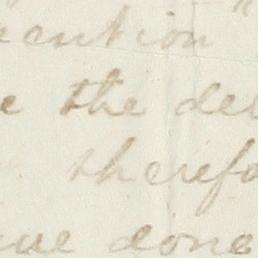 ention
e the del
therefo
ue done